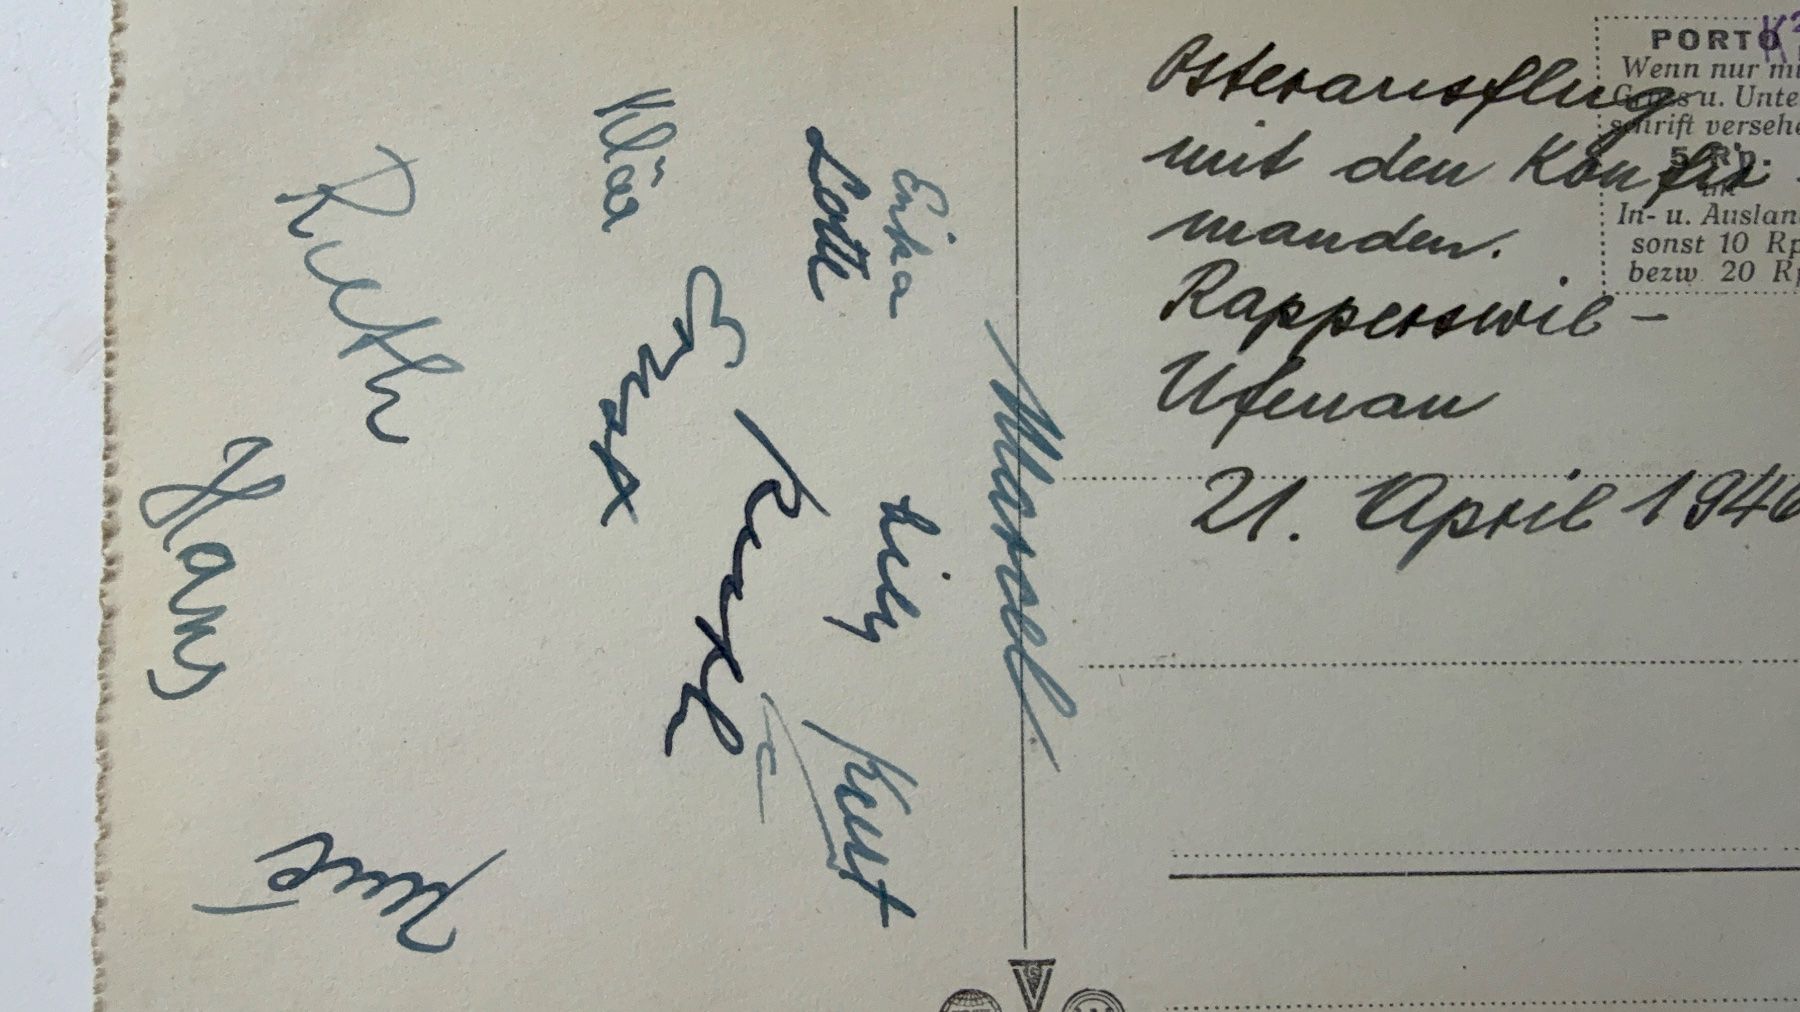 Osterausflug
mit den Konfir-
manden.
Rapperswil -
Ufenau
21. April 1946
PORTO
Wenn nur mi
Gruss u. Unte
schrift versehe
5 Rp.
im
In- u. Auslan
sonst 10 Rp
bezw. 20 Rp
Marcel
Erika
Lotte
Lily
Kurt
Kläa
Ernst
Ruth
Hans